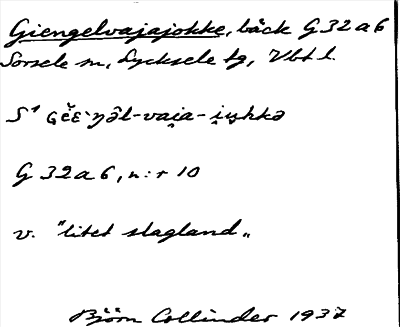 Giengelvajajokke, bäck G 32 a 6
Sorsele sn, Lycksele tg, Vbt l.
G 32 a 6, n:r 10
v. "litet slagland"
Björn Collinder 1937